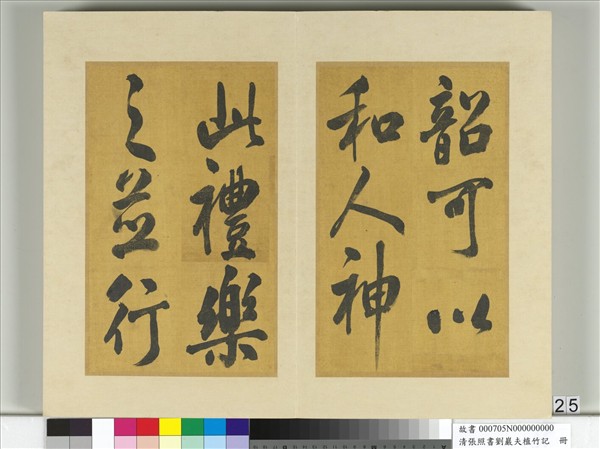 韶可以
和人神
此禮樂
之並行
25
故書 000705N000000000
清張照書劉巖夫植竹記 冊